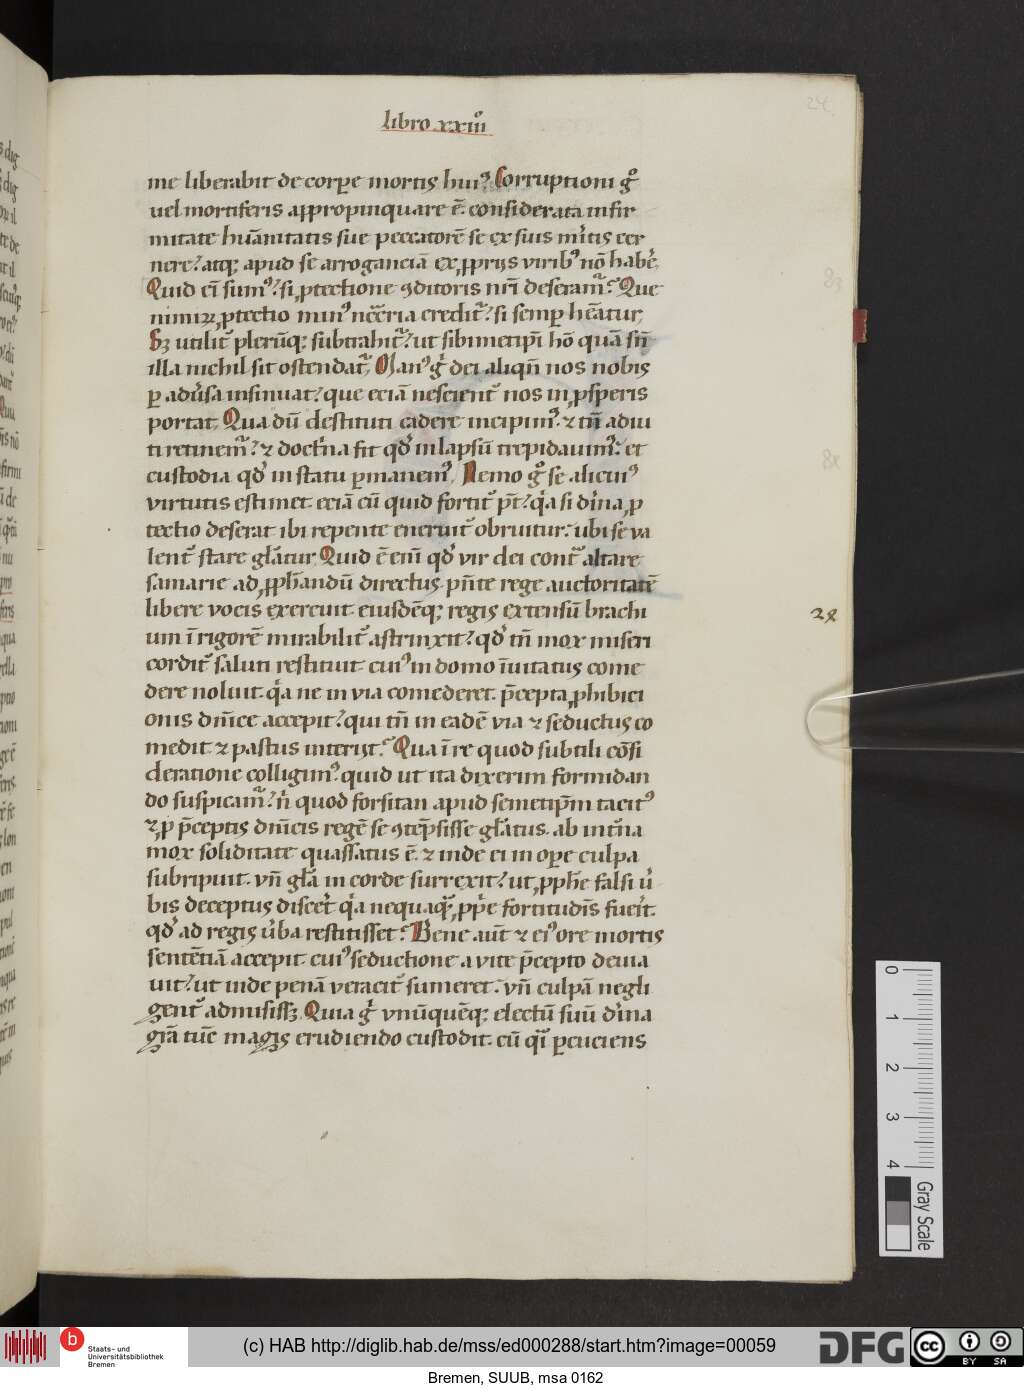 libro xxiiiͦ
24
me liberabit de corꝑe mortis huiꝰ. Corruptioni gͦ
uel mortiferis appropinquare ē. considerata infir
mitate hūanitatis sue peccatorē se ex suis m̄itis cer
nere? atqꝫ apud se arroganciā ex ꝓprijs viribꝰ nō habē.
Quid eī sumꝰ? si ꝓtectione ꝯditoris nr̄i deseramͬ? Que
nimiꝝ ꝓtectio minꝰ nec̄cria creditͬ? si semꝑ heātur,
Sꝫ utilit᷑ plerūqꝫ subtrahitͬ? ut sibimetip̄i hō quā sn̄
illa nichil sit ostendatͬ. Manꝰ gͦ dei aliqn̄ nos nobis
ꝑ adūsa insinuat? que eciā nescient᷑ nos in ꝓsꝑeris
portat. Qua dū destituti cadere incipimꝰ. ⁊ tn̄ adiu
ti retinemͬ? ⁊ doctͥna fit qd̓ in lapsū trepidauimꝰ. et
custodia qd̓ in statu ꝑmanemꝰ. Nemo gͦ se alicuiꝰ
virtutis estimet. eciā cū quid fortit᷑ p̄t? qͥa si diͥna ꝓ
tectio deserat. ibi repente eneruit᷑ obruitur. ubi se va
lent᷑ stare glātur. Quid ē em̄ qd̓ vir dei cont͛ altare
samarie ad ꝓph̄andū directus. pn̄te rege auctoritatē
libere vocis exercuit. eiusdēqꝫ regis extensū brachi
um ī rigorē mirabilit᷑ astrinxit? qd̓ tn̄ mox miseri
cordit᷑ saluti restituit. cuiꝰ in domo īuitatus come
dere noluit. qͥa ne in via comederet. p̄cepta ꝓhibici
onis dn̄ice accepit? qui tn̄ in eadē via ⁊ seductus co
medit. ⁊ pastus interijt. Qua ī re quod subtili cōsi
deratione colligimꝰ. quid ut ita dixerim formidan
do suspicamͬ? nͥ quod forsitan apud semetip̄m tacitꝰ
⁊ ꝓ p̄ceptis dn̄icis regē se ꝯtēpsisse glātus. ab intͥna
mox soliditate quassatus ē. ⁊ inde ei in oꝑe culpa
subripuit. vn̄ glā in corde surrexit? ut ꝓph̄e falsi ū
bis deceptus discēt qͥa nequaq̄ꝫ ꝓpͥe fortitudīs fuerͥt.
qd̓ ad regis ūba restitisset. Bene aūt ⁊ eiꝰ ore mortis
sentētiā accepit. cuiꝰ seductione a vite p̄cepto deuia
uit? ut inde penā veracit᷑ sumeret. vn̄ culpā negli
gent᷑ admisissꝫ. Quia gͦ vnūquēqꝫ electū suū diͥna
grā tūc magis erudiendo custodit. cū qͥ ꝑcuciens
0
1
2
3
4
Gray Scale
b
Staats- und
Universitätsbibliothek
Bremen
(c) HAB http://diglib.hab.de/mss/ed000288/start.htm?image=00059
DFG
cc
BY SA
Bremen, SUUB, msa 0162